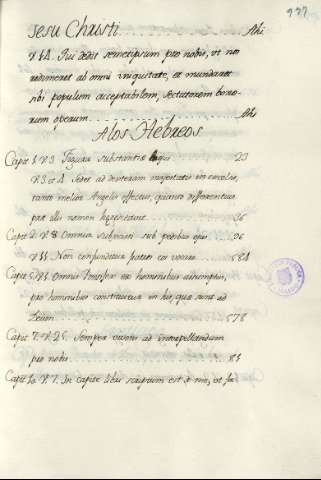 977
Jesu Christi. Ibi
V. 14. Qui dedit semetipsum pro nobis, ut nos
redimeret ab omni iniquitate, et mundaret
sibi populum acceptabilem, sectatorem bono-
rum operum. Ibi
A los Hebreos
Capit. 1. V. 3. Figura substantiæ ejus. 23
V. 3 et 4. Sedet ad dexteram majestatis in excelsis,
tanto melior Angelis effectus, quanto differentius
præ illis nomen hæreditavit. 36
Capit. 2. V. 8. Omnia subjecisti sub pedibus ejus. 36
V. 11. Non confunditur fratres eos vocare. 584
Capit. 5. V. 1. Omnis Pontifex ex hominibus assumptus,
pro hominibus constituitur in his, quæ sunt ad
Deum. 578
Capit. 7. V. 25. Semper vivens ad interpellandum
pro nobis. 85
Capit. 10. V. 7. In capite libri scriptum est de me, ut fa